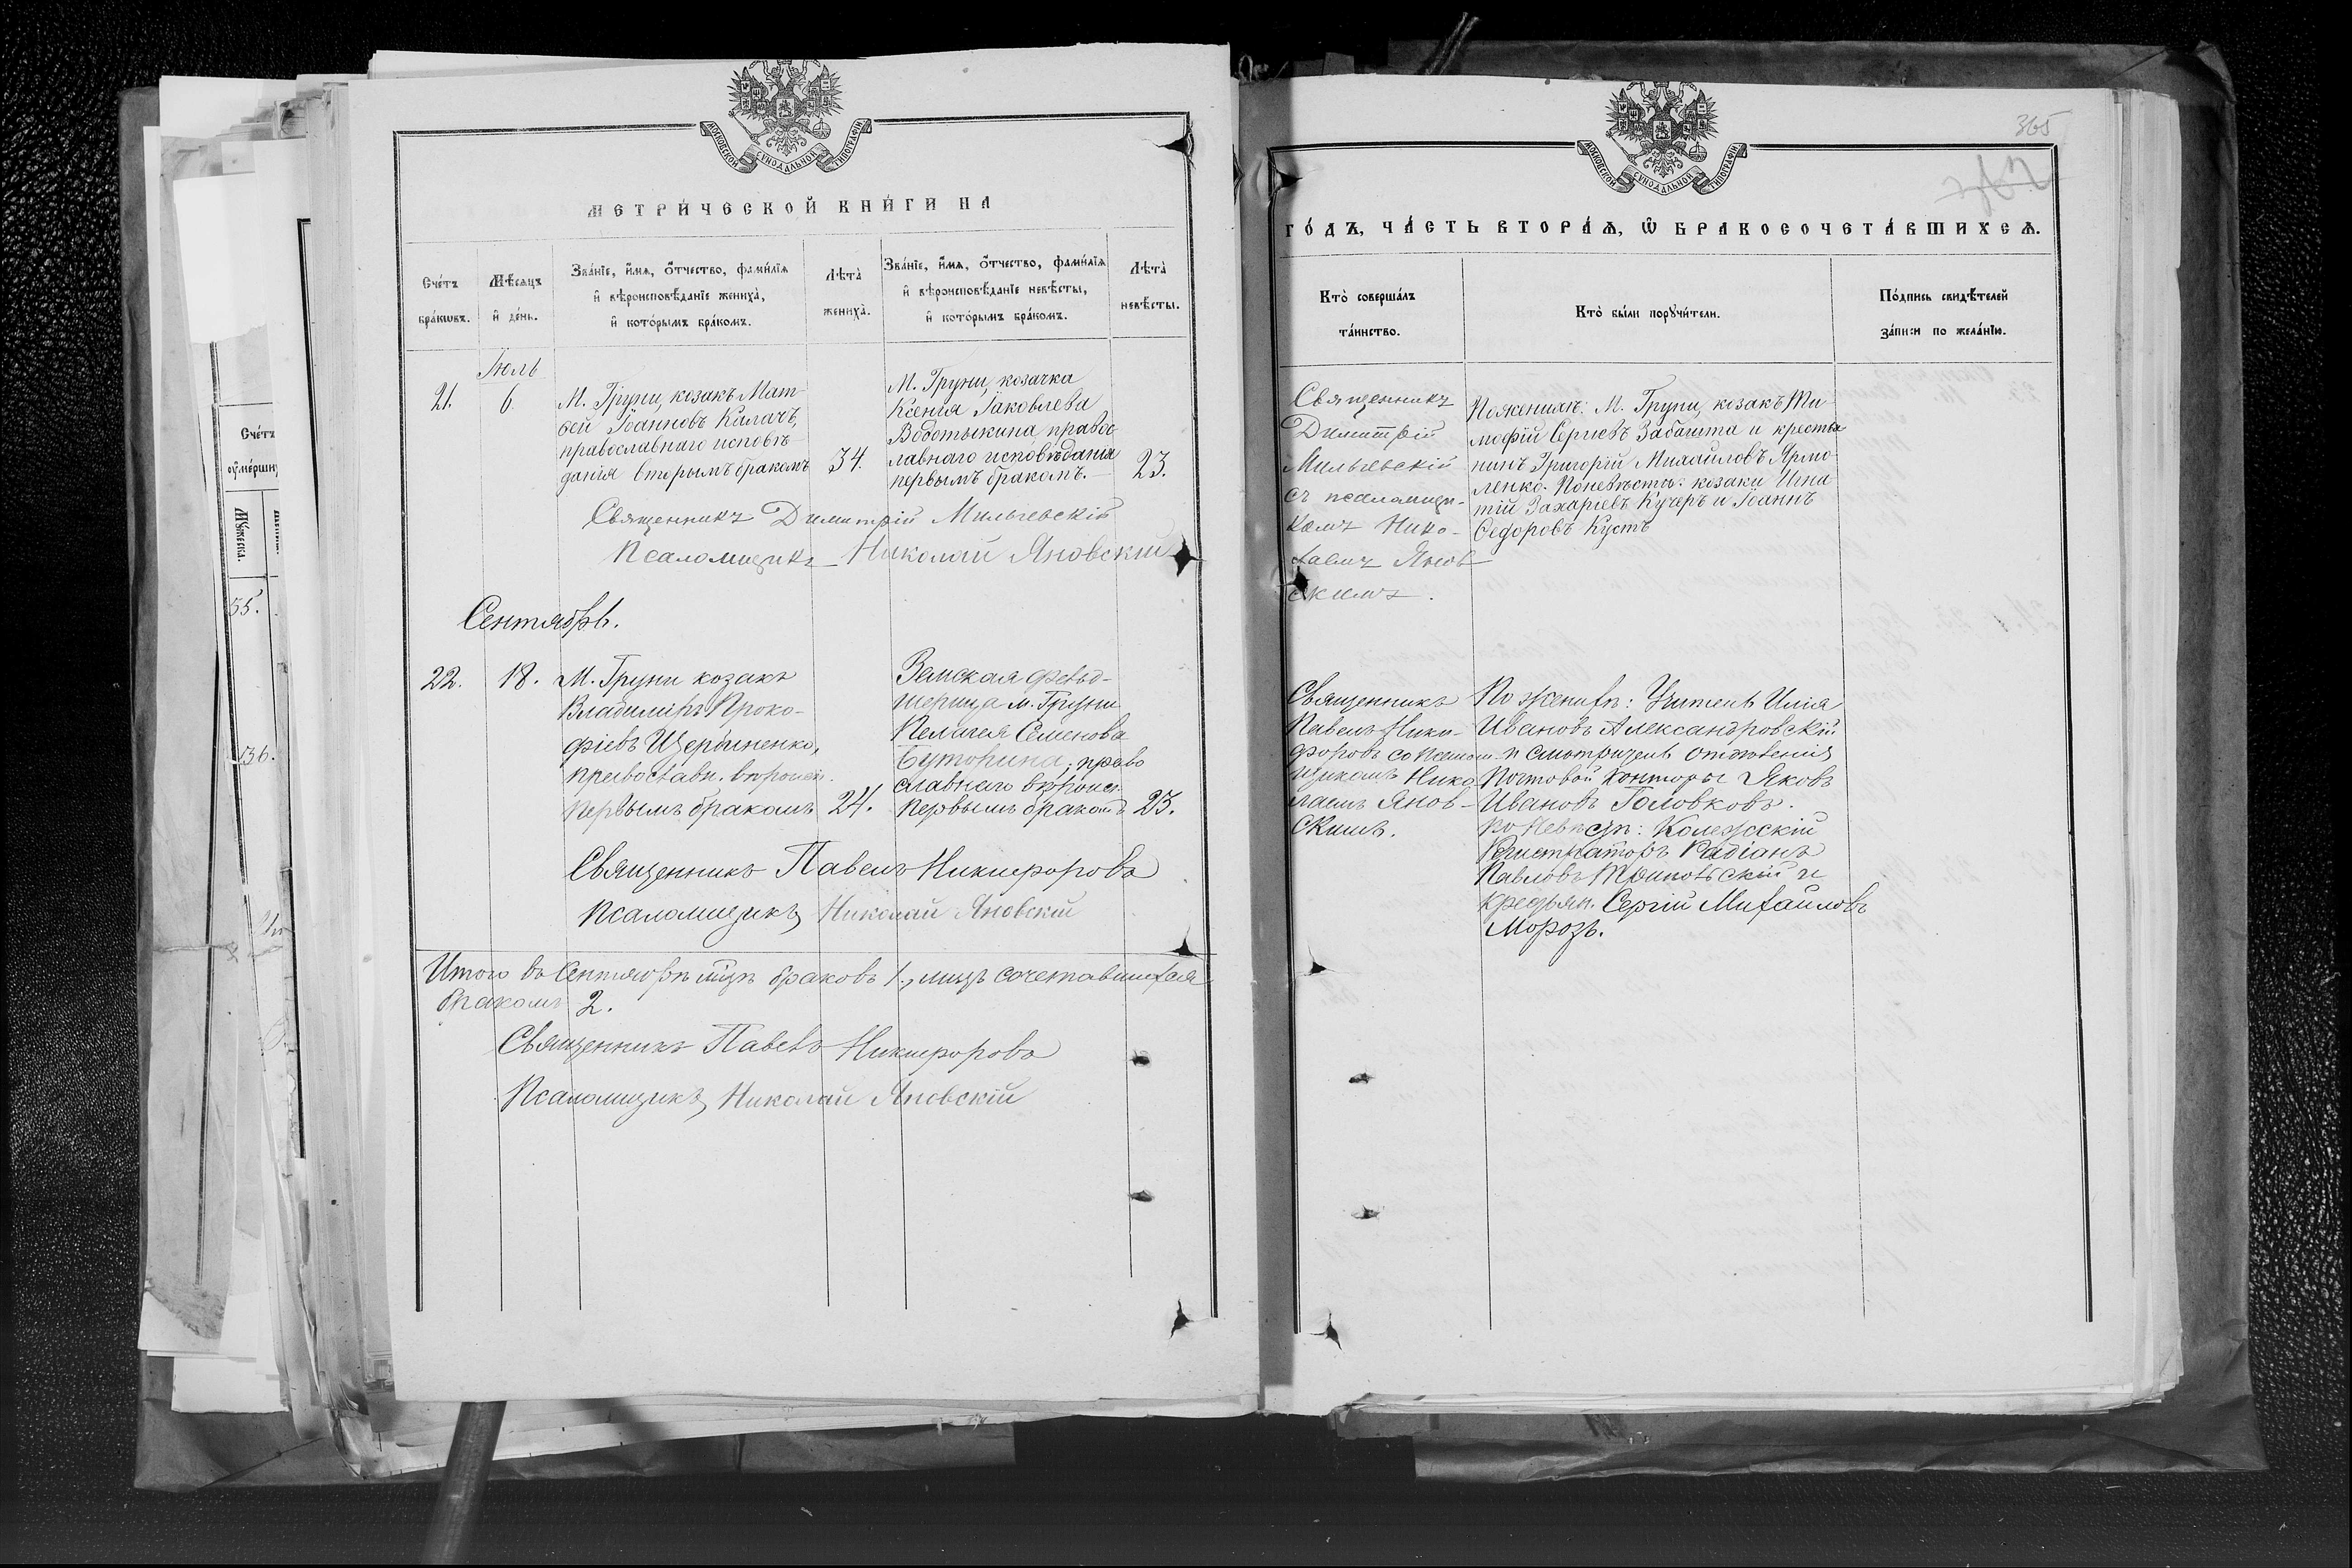 МОСКОВСКОЙ СѴНОДАЛЬНОЙ ТИПОГРАФІИ
МЕТРИ́ЧЕСКОЙ КНИ́ГИ НА
Сче́тъ бра́ковъ.
Мѣ́сяцъ и де́нь.
Зва́нїе, и́мѧ, о́тчество, фами́лїѧ
и вѣроисповѣ́данїе жениха̀,
и кото́рымъ бра́комъ.
Лѣта̀
жениха̀.
Зва́нїе, и́мѧ, о́тчество, фами́лїѧ
и вѣроисповѣ́данїе невѣ́сты,
и кото́рымъ бра́комъ.
Лѣта̀
невѣ́сты.
Іюль
21.
6
М. Груни, козакъ Мат-
ѳей Іоанновъ Калачъ,
православнаго исповѣ-
данія вторымъ бракомъ
34.
М. Груни, козачка
Ксенія Іаковлева
православ-
лавнаго исповѣданія
первымъ бракомъ.
23.
Священникъ Димитрій Мильчевскій
Псаломщикъ Николай Яновскій
Сентябрь.
22.
18.
М. Груни козакъ
Владиміръ Проко-
фіевъ Щербиненко,
православн. вѣроисп.
первымъ бракомъ
24.
Земская фельд-
шерица м. Груни
Пелагея Семенова
Буторина, право
славнаго вѣроисп.
первымъ бракомъ
23.
Священникъ Павелъ Никифоровъ
Псаломщикъ Николай Яновскій
Итого въ Сентябрѣ мцѣ браковъ 1, лицъ сочетавшихся
бракомъ 2.
Священникъ Павелъ Никифоровъ
Псаломщикъ Николай Яновскій
Сче́тъ
оуме́рши
Мꙋ́жеска.
55.
136.
МОСКОВСКОЙ СѴНОДАЛЬНОЙ ТИПОГРАФІИ
365
ГО́ДЪ, ЧА́СТЬ ВТОРА́Ѧ, Ѡ БРАКОСОЧЕТА́ВШИХСѦ.
Кто̀ соверша́лъ
та́инство.
Кто̀ бы́ли порꙋчи́тели.
По́дпись свидѣ́телей
за́писи по жела́нїю.
Священникъ
Димитрій
Мильчевскій
съ псаломщи-
комъ Нико-
лаемъ Янов
скимъ.
По женихѣ: М. Груни, козакъ Ти
моѳій Сергіевъ Забашта и крестья
нинъ Григорій Михайловъ Ярмо
ленко. По невѣсты: козаки Игна
тій Захаріевъ Кучеръ и Іоаннъ
Ѳедоровъ Кустъ
Священникъ
Павелъ Ники-
форовъ со псалом-
щикомъ Нико
лаемъ Янов-
скимъ.
По женихѣ: Учитель Илія
Ивановъ Александровскій
и смотритель отдѣленія
Почтовой конторы Яковъ
Ивановъ Головковъ.
По невѣстѣ: Колежскій
Регистраторъ Радіанъ
Павловъ Трипольскій и
крестьян. Сергій Михайловъ
Морозъ.